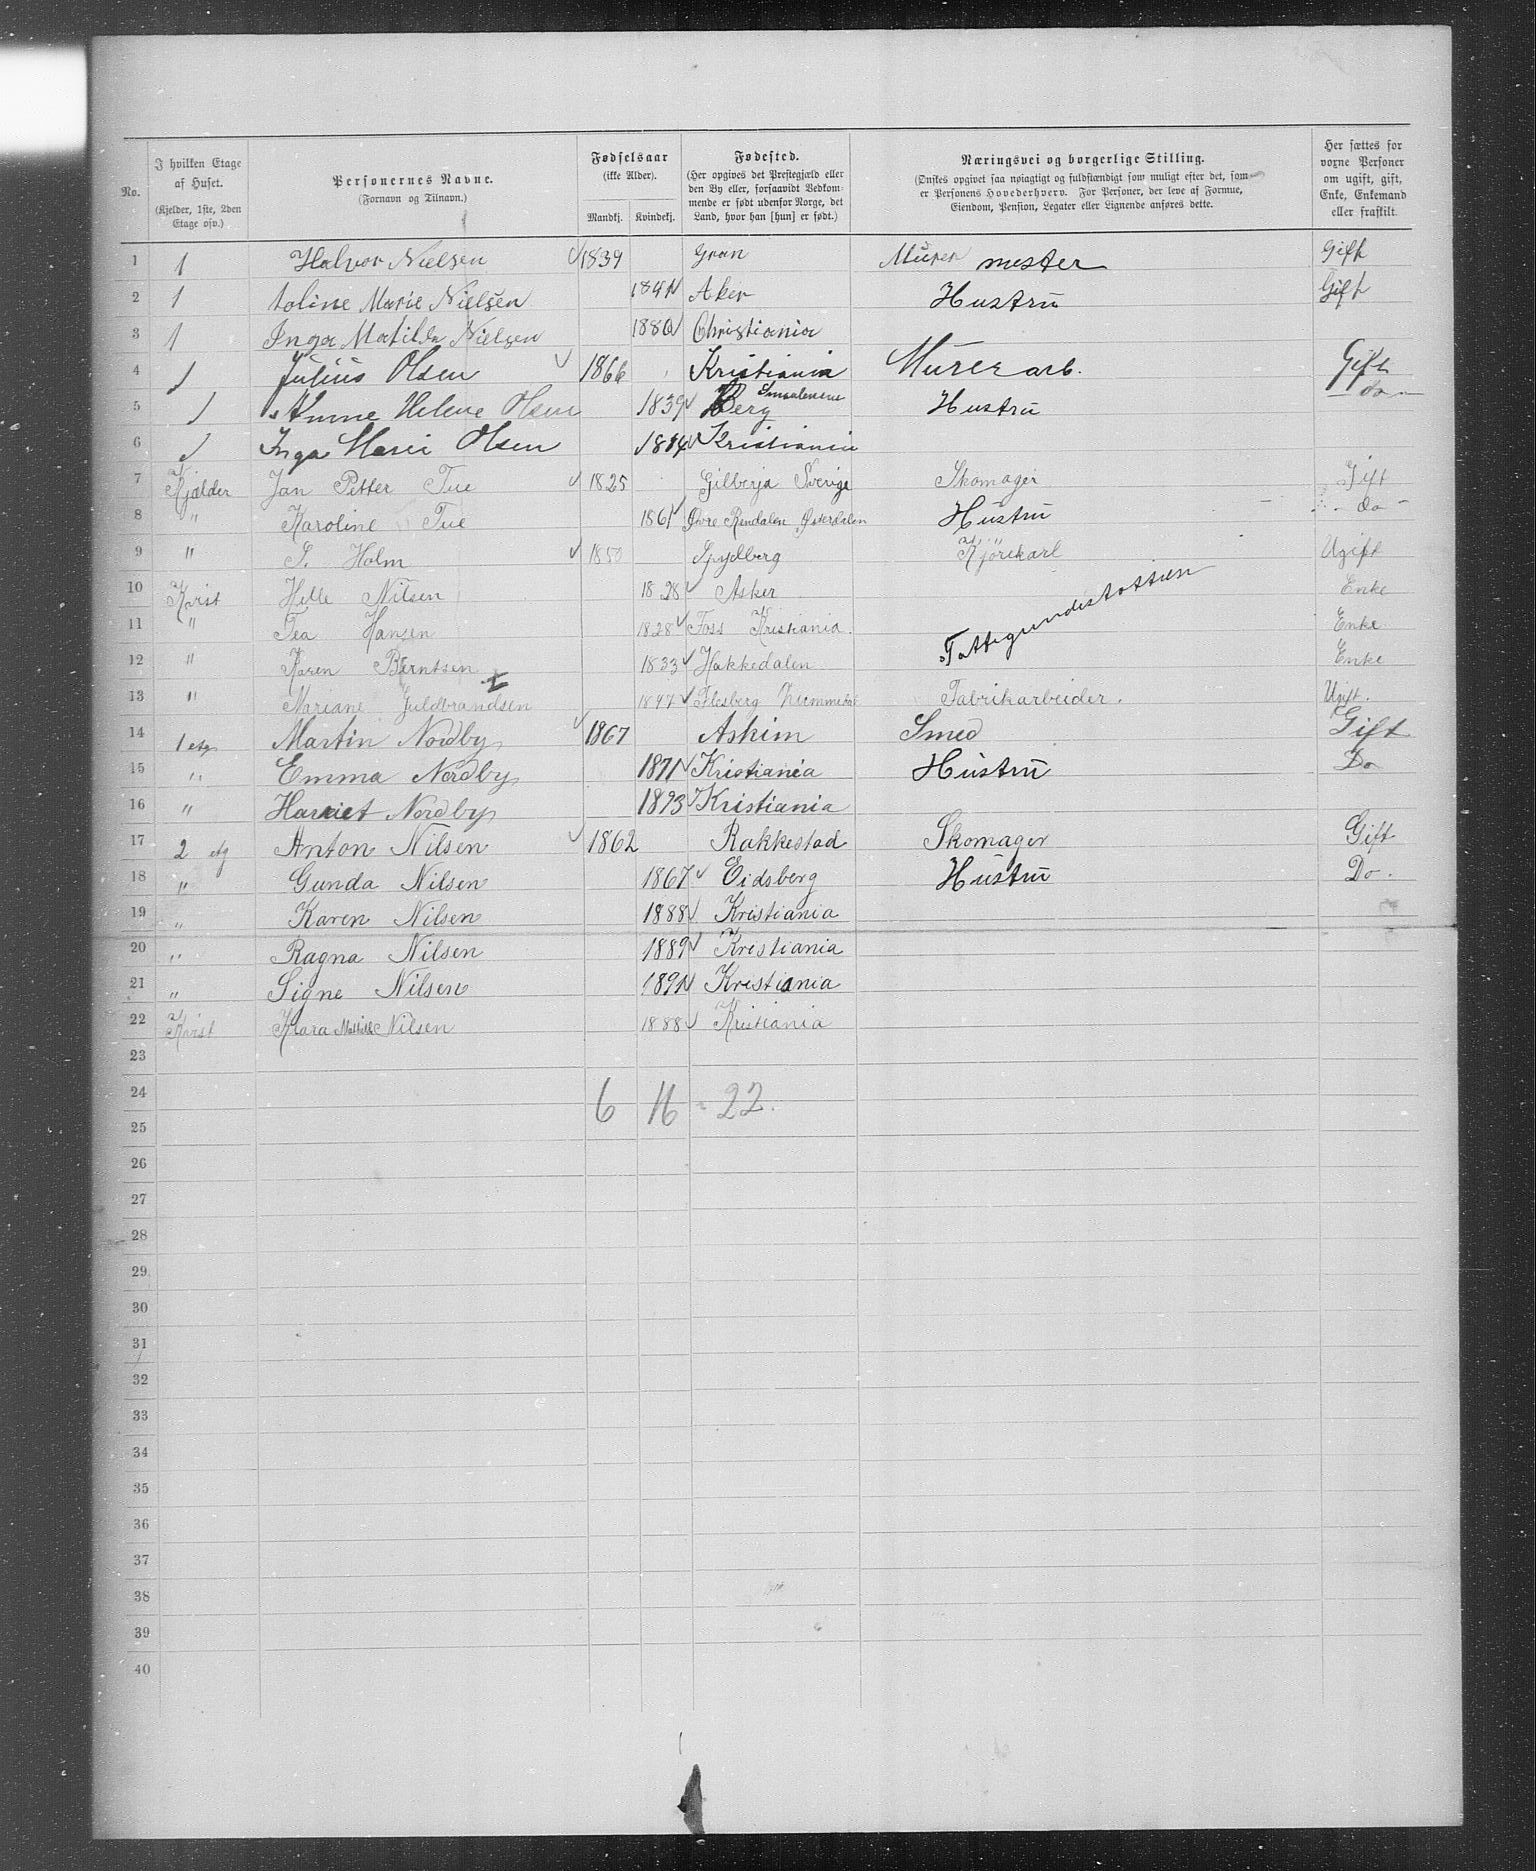 No. | I hvilken Etage af Huset. (Kjelder, 1ste, 2den Etage osv.) | Personernes Navne. (Fornavn og Tilnavn.) | Fødselsaar (ikke Alder). Mandkj. Kvindekj. | Fødested. (Her opgives det Prestegjæld eller den By eller, forsaavidt Vedkommende er født udenfor Norge, det Land, hvor han [hun] er født.) | Næringsvei og borgerlige Stilling. (Ønskes opgivet saa nøiagtigt og fuldstændigt som muligt efter det, som er Personens Hovederhverv. For Personer, der leve af Formue, Eiendom, Pension, Legater eller Lignende anføres dette. | Her sættes for voxne Personer om ugift, gift, Enke, Enkemand eller fraskilt.
1 1 Halvor Nielsen 1839 Gran Murer mester Gift
2 1 Marie Nielsen Aker Hustru Gift
3 1 Inga Matilda Nielsen 1880 Christiania
4 1 Julius Olsen 1866 Kristiania Murer arb. Gift
5 1 Anne Helene Olsen 1839 Berg Smaalenene Hustru do
6 1 Inga Marie Olsen Kristiania
7 Kjælder Jan Petter Tue 1825 Gilberja Sverige Skomager Gift
8 " Karoline Tue 1861 Øvre Rendalen Østerdalen Hustru do
9 " Holm 1850 Spydberg Kjørekarl Ugift
10 Kvist Helle Nilsen 1828 Asker Enke
11 " Tea Hansen 1828 Foss Kristiania. Fattigundestøttien Enke
12 " Karen Berntsen 1833 Hakkedalen Enke
13 " Mariane Guldbrandsen Flesberg Nummedal Fabrikarbeider. Ugift.
14 1 etg Martin Nordby 1867 Askim Smed Gift
15 " Emma Nordby 1871 Kristiania Hustru Do
16 " Harriet Nordby 1893 Kristiania
17 2 etg Anton Nilsen 1862 Rakkestad Skomager Gift
18 " Gunda Nilsen 1867 Eidsberg Hustru Do.
19 " Karen Nilsen 1888 Kristiania
20 " Ragna Nilsen 1889 Kristiania
21 " Signe Nilsen 1891 Kristiania
22 Kvist Klara Mathilde Nilsen 1888 Kristiania
23
24 6 16 = 22.
25
26
27
28
29
30
31
32
33
34
35
36
37
38
39
40